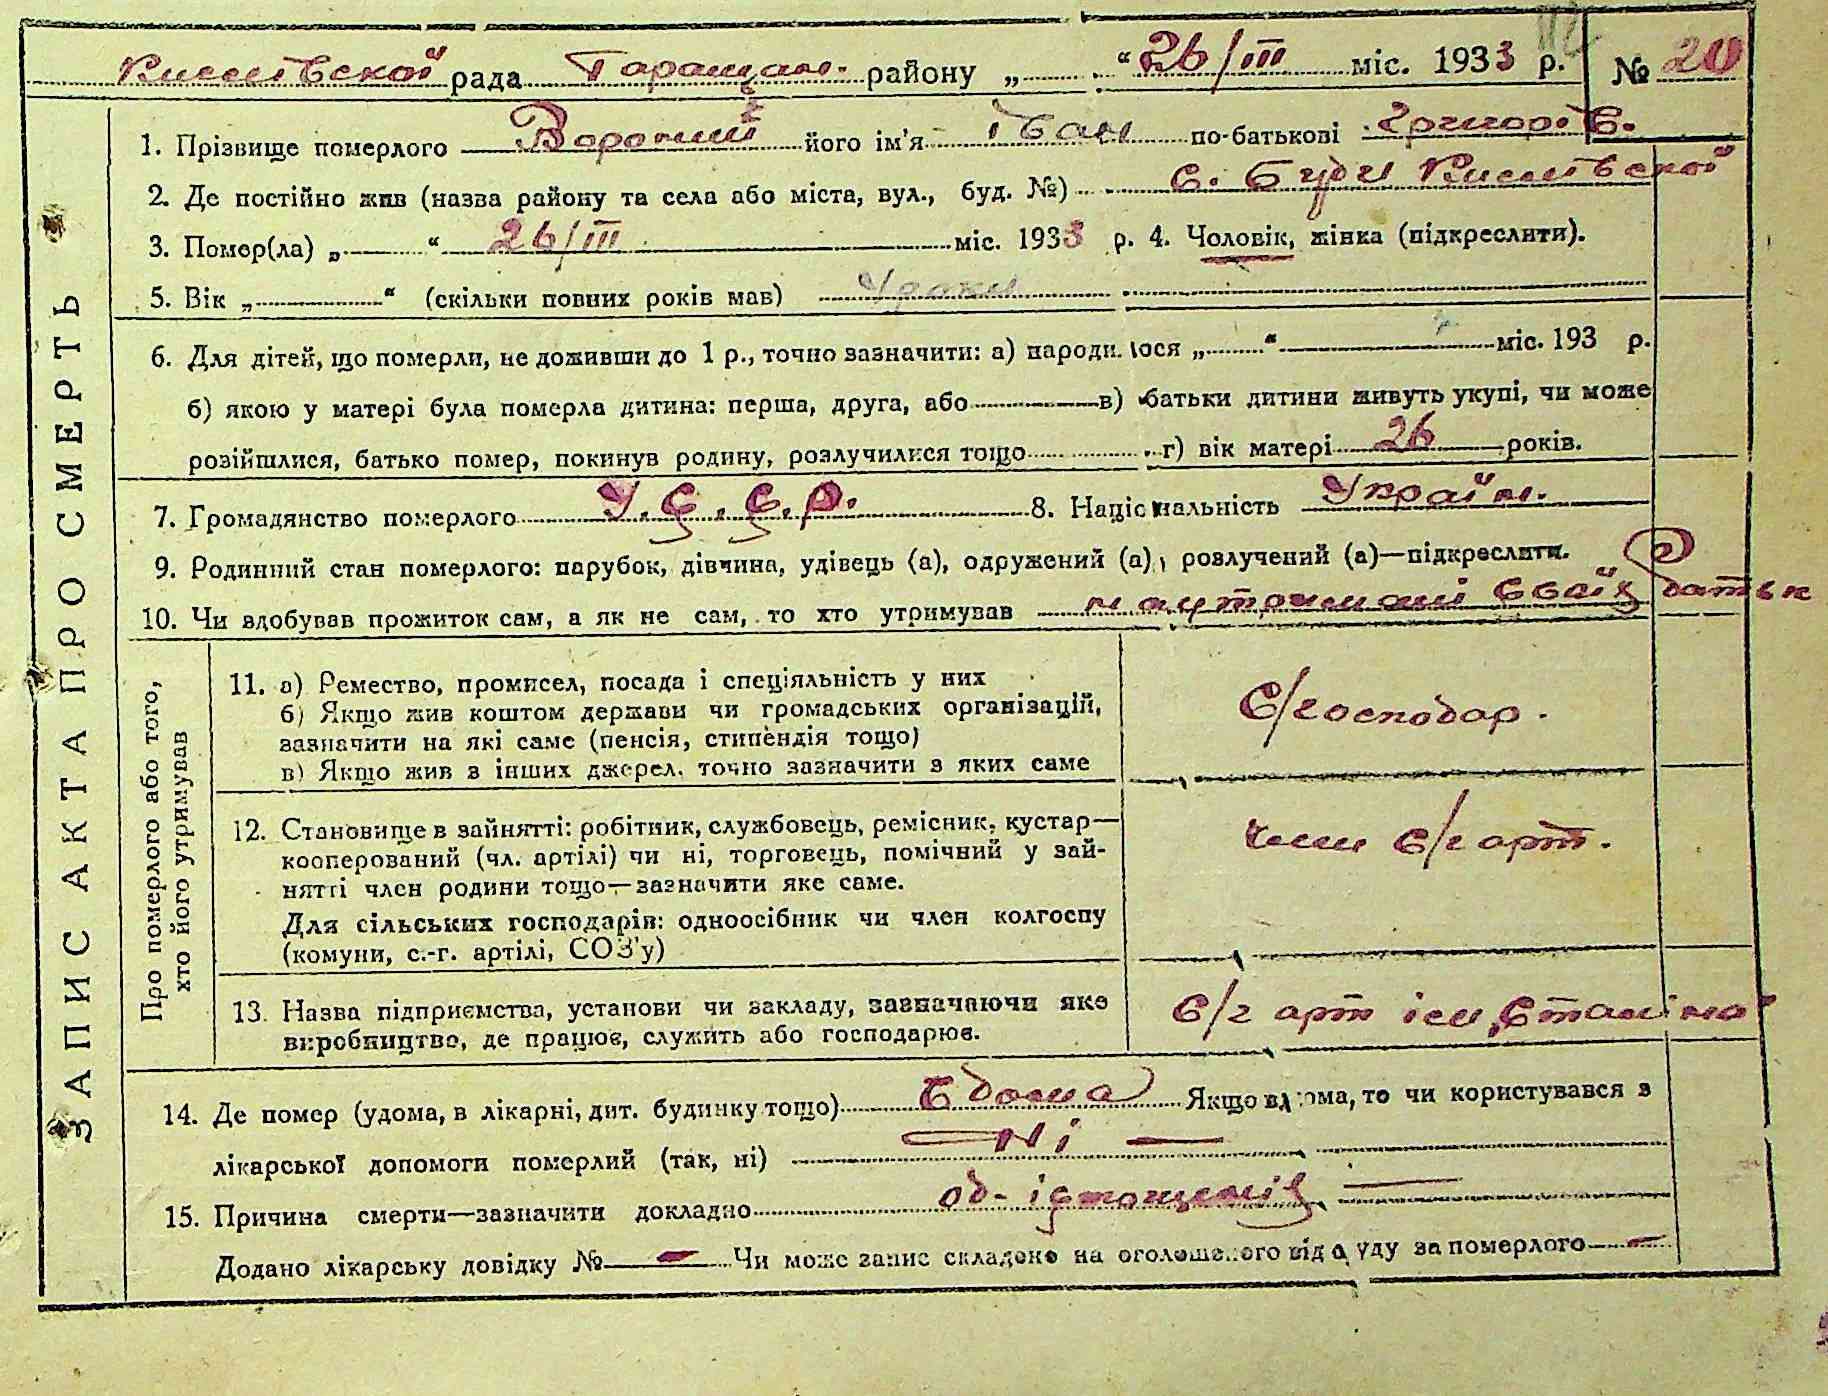 Кислівской рада Таращан. району „ “ 26/III міс. 1933 р. № 20
ЗАПИС АКТА ПРО СМЕРТЬ
1. Прізвище померлого Вороний його ім'я Іван по-батькові Григоров.
2. Де постійно жив (назва району та села або міста, вул., буд. №) с. Буди Кислівской
3. Помер(ла) „ “ 26/III міс. 1933 р. 4. Чоловік, жінка (підкреслити).
5. Вік „ “ (скільки повних років мав)
6. Для дітей, що померли, не доживши до 1 р., точно зазначити: а) народилося „ “ міс. 193 р.
б) якою у матері була померла дитина: перша, друга, або в) батьки дитини живуть укупі, чи може
розійшлися, батько помер, покинув родину, розлучилися тощо г) вік матері 26 років.
7. Громадянство померлого У.С.С.Р. 8. Національність Україн.
9. Родинний стан померлого: парубок, дівчина, удівець (а), одружений (а), розлучений (а)—підкреслити.
10. Чи здобував прожиток сам, а як не сам, то хто утримував на утриманні своїх батьк
Про померлого або того,
хто його утримував
11. а) Ремество, промисел, посада і спеціяльність у них
б) Якщо жив коштом держави чи громадських організацій,
зазначити на які саме (пенсія, стипендія тощо)
в) Якщо жив з інших джерел, точно зазначити з яких саме
С/господар.
12. Становище в зайнятті: робітник, службовець, ремісник, кустар—
кооперований (чл. артілі) чи ні, торговець, помічний у зай-
нятті член родини тощо—зазначити яке саме.
Для сільських господарів: одноосібник чи член колгоспу
(комуни, с.-г. артілі, СОЗ'у)
член с/г арт.
13. Назва підприємства, установи чи закладу, зазначаючи яке
виробництво, де працює, служить або господарює.
С/г арт ім. Сталіна
14. Де помер (удома, в лікарні, дит. будинку тощо) Вдома Якщо вдома, то чи користувався з
лікарської допомоги померлий (так, ні) — Ні —
15. Причина смерти—зазначити докладно од- істощенія —
Додано лікарську довідку № — Чи може запис складено на оголошеного від суду за померлого —